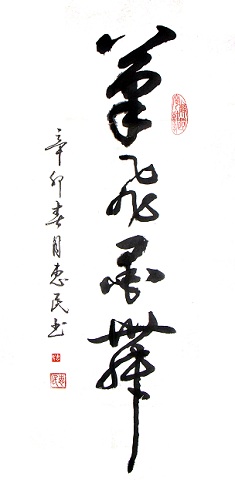 笔飞墨舞
辛卯春月惠民书